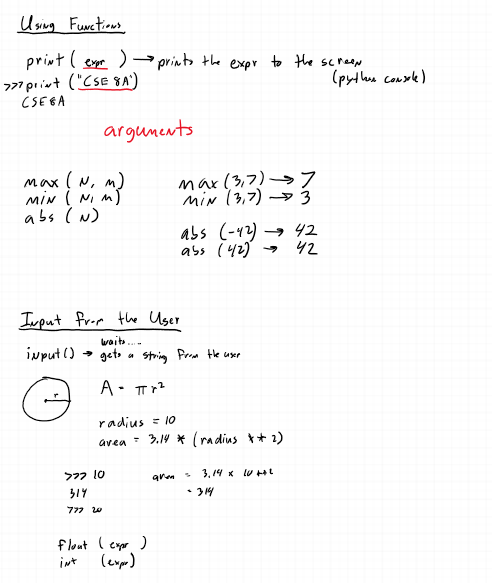 Using Functions
print ( expr ) → prints the expr to the screen
(python console)
>>> print ("CSE 8A")
CSE 8A
arguments
max ( N, m)
min ( N, m)
abs ( N)
max (3,7) → 7
min (3,7) → 3
abs (-42) → 42
abs (42) → 42
Input from the User
waits....
input() → gets a string from the user
r
A = π r²
radius = 10
area = 3.14 * (radius ** 2)
>>> 10
314
>>> 20
area = 3.14 * 10 **2
= 314
float ( expr )
int (expr)